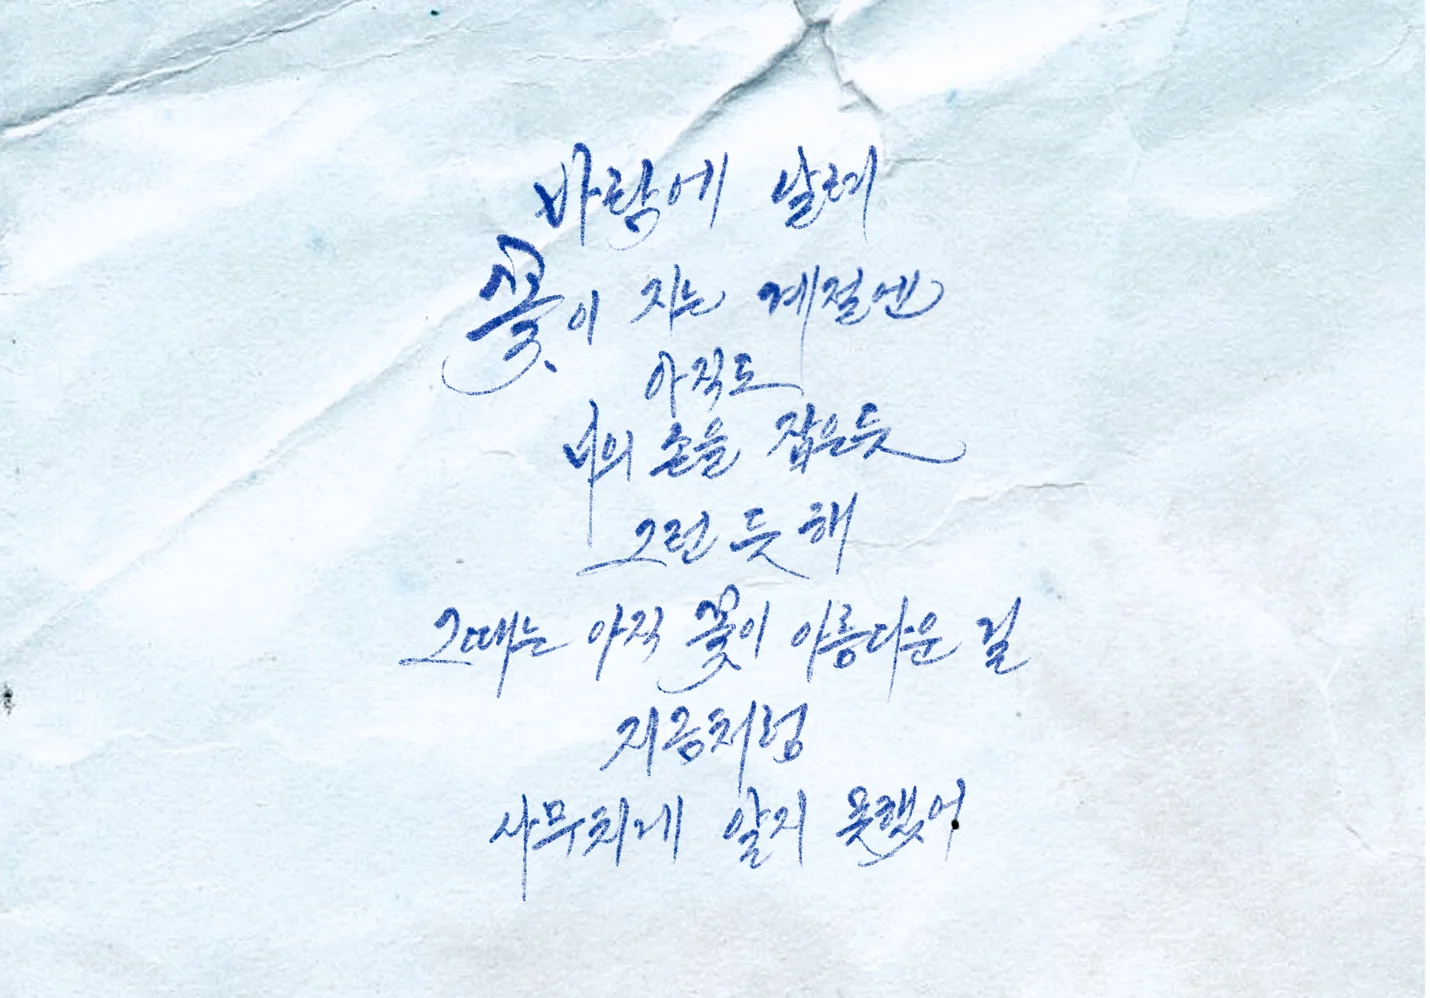 바람에 날려
꽃이 지는 계절엔
아직도
너의 손을 잡은듯
그런 듯 해
그때는 아직 꽃이 아름다운 걸
지금처럼
사무치게 알지 못했어